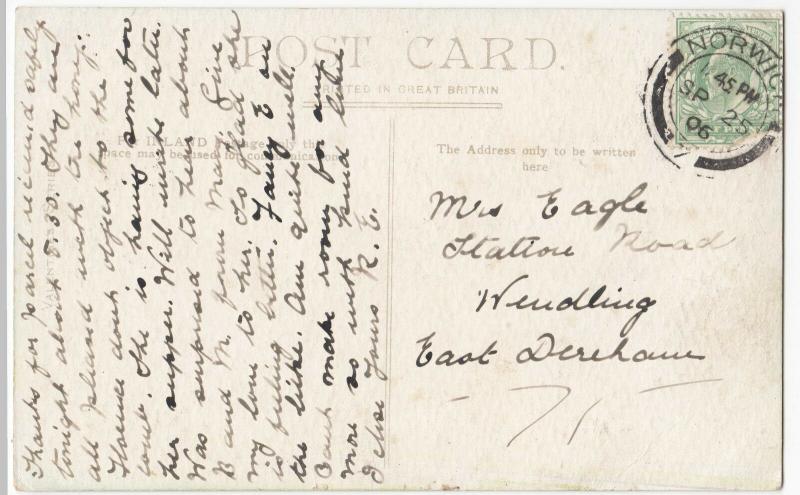 POST CARD.
PRINTED IN GREAT BRITAIN
FOR INLAND Postage only this
space may be used for communication
The Address only to be written
here
NORWICH
45 PM
SP 25
06
Mrs Eagle
Station Road
Wendling
East Dereham
Thanks for parcel received safely
tonight about 5.30. They are
all pleased with the honey.
Florence dont object to the
comb. She is having some for
her supper. Will write later.
Was surprised to hear about
B and M. from Maj. Give
my love to her. So glad she
is feeling better. Fancy E on
the bike. Am quite well.
Cant make room for any
more so with kind love
I close Yours R. E.